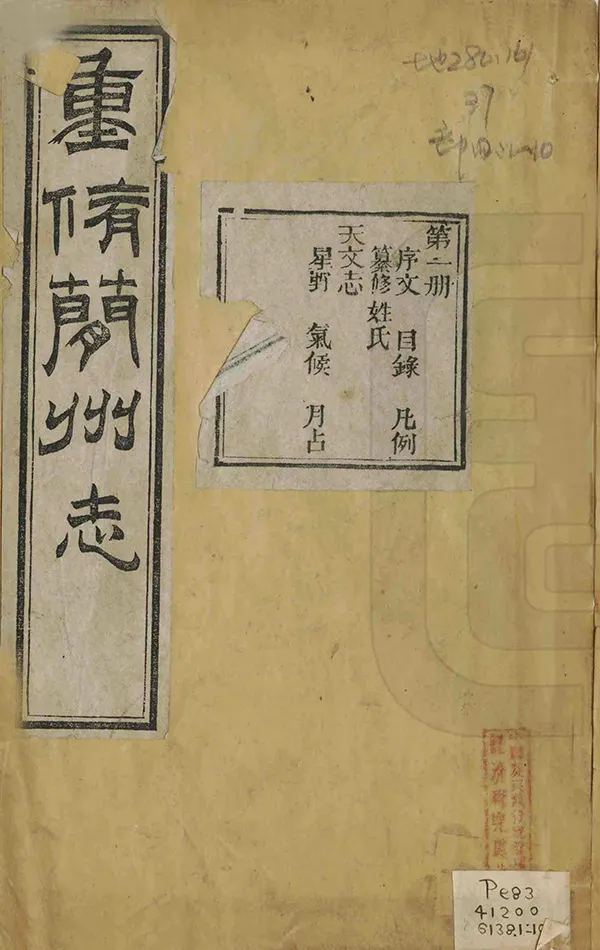 重脩蕳州志
第一册
序文 目錄 凡例
纂修姓氏
天文志
星野 氣候 月占
Pe83
41200
6138.1-10